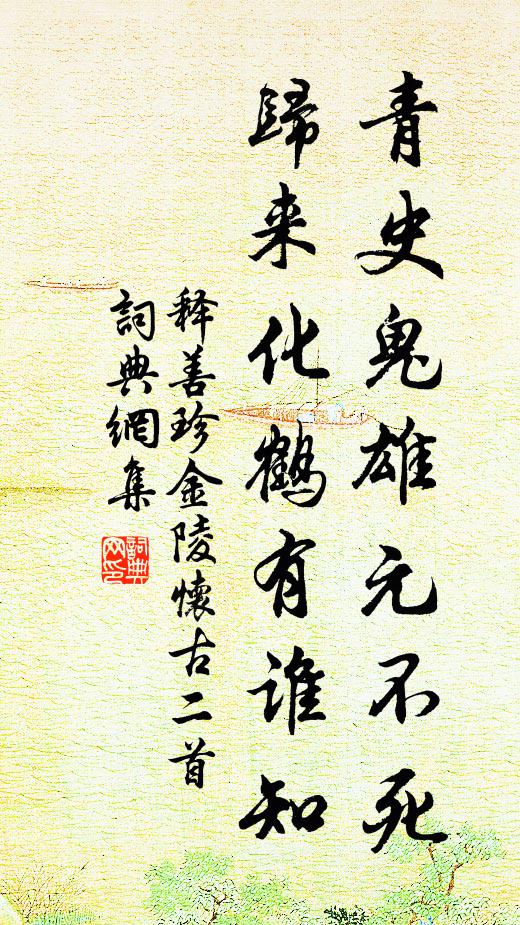 青史鬼雄元不死
歸来化鶴有誰知
释善珍金陵懷古二首
詞典網集
詞典网印